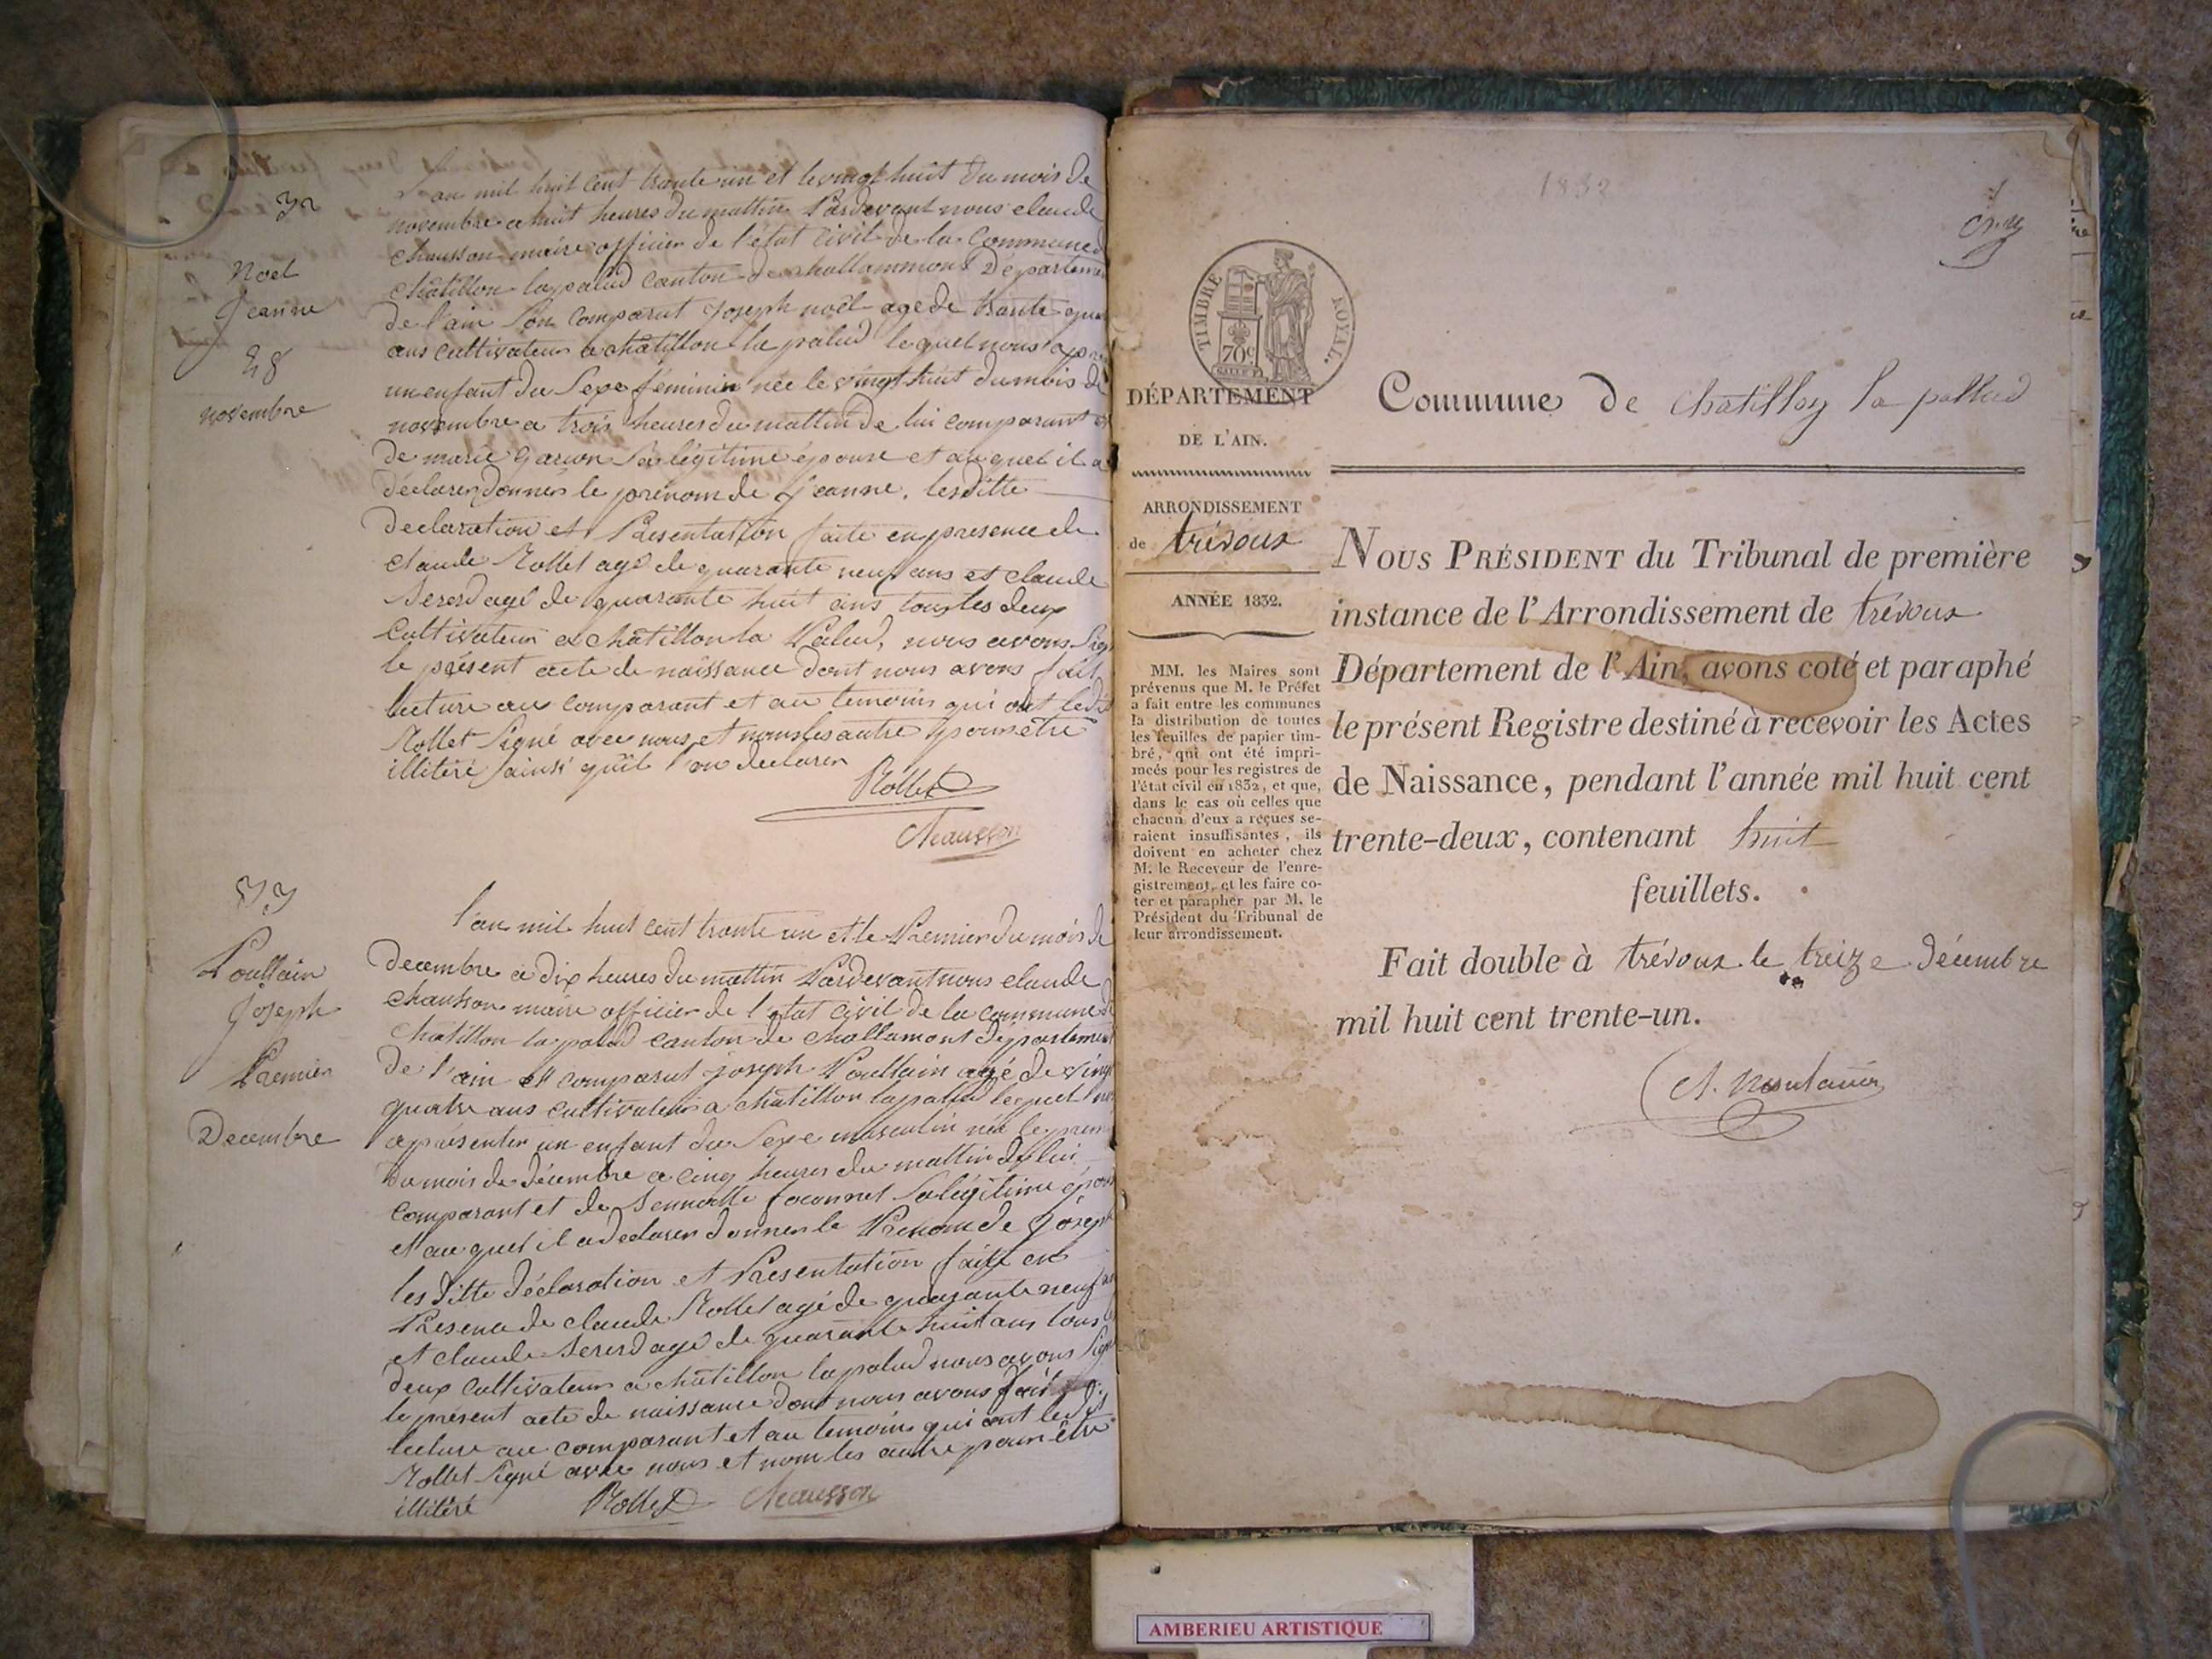 32
Noel
Jeanne
28
novembre
L'an mil huit cent trante un et le vingt huit du mois de
novembre a huit heures du mattin Pardevant nous claude
chausson maire officier de l'état civil de la Commune d
châtillon la palud canton de challammont Départemen
de l'ain Son Comparut Joseph noël age de trante qua
ans cultivateur a châtillon la palud lequel nous a pre
un enfant du Sexe féminin née le vingt huit du mois de
novembre a trois heures du mattin de lui comparant et
De marie garion Sa légitime épouse et auquel il a
déclarer donner le prénom de Jeanne. lesditte
declaration et Presentation faite en presence de
claude Rollet agé de quarante neuf ans et claude
agé de quarante huit ans tous les deux
Cultivateur a châtillon la Palud, nous avons Sign
le présent acte de naissance dont nous avons fait
lecture au comparant et au temoins qui ont ledit
Rollet Signé avec nous et non les autre pour être
illitéré ainsi qu'il on declarer
Rollet
Chausson
33
Poullain
Joseph
Premier
Decembre
l'an mil huit cent trante un et le Premier du mois de
Decembre a dix heures du mattin Pardevant nous claude
chausson maire officier de l'état civil de la commune de
Chatillon la palud canton de challamont département
De l'ain est comparut joseph Poullain agé de vingt
quatre ans cultivateur a chatillon la palud lequel nous
a présenter un enfant du Sexe masculin née le prem
du mois de décembre a cinq heures du mattin de lui
comparant et de Sa légitime épous
et au quel il a declarer donner le Prenom de Joseph
les ditte déclaration et Présentation faite en
Présence de claude Rollet agé de quarante neuf ans
et claude agé de quarante huit ans tous les
deux cultivateur a châtillon la palud nous avons Sign
le présent acte de naissance dont nous avons fait
lecture au comparant et au temoins qui ont ledit
Rollet Signé avec nous et non les autre pour être
illitéré Rollet Chausson
1832
TIMBRE ROYAL.
70c
DÉPARTEMENT
DE L'AIN.
ARRONDISSEMENT
de trévoux
ANNÉE 1832.
MM. les Maires sont
prévenus que M. le Préfet
a fait entre les communes
la distribution de toutes
les feuilles de papier tim-
bré, qui ont été impri-
mées pour les registres de
l'état civil en 1832, et que,
dans le cas où celles que
chacun d'eux a reçues se-
raient insuffisantes, ils
doivent en acheter chez
M. le Receveur de l'enre-
gistrement, et les faire co-
ter et parapher par M. le
Président du Tribunal de
leur arrondissement.
Commune de chatillon la pallud
NOUS PRÉSIDENT du Tribunal de première
instance de l'Arrondissement de trévoux
Département de l'Ain, avons coté et paraphé
le présent Registre destiné à recevoir les Actes
de Naissance, pendant l'année mil huit cent
trente-deux, contenant huit
feuillets.
Fait double à trévoux le treize décembre
mil huit cent trente-un.
AMBERIEU ARTISTIQUE